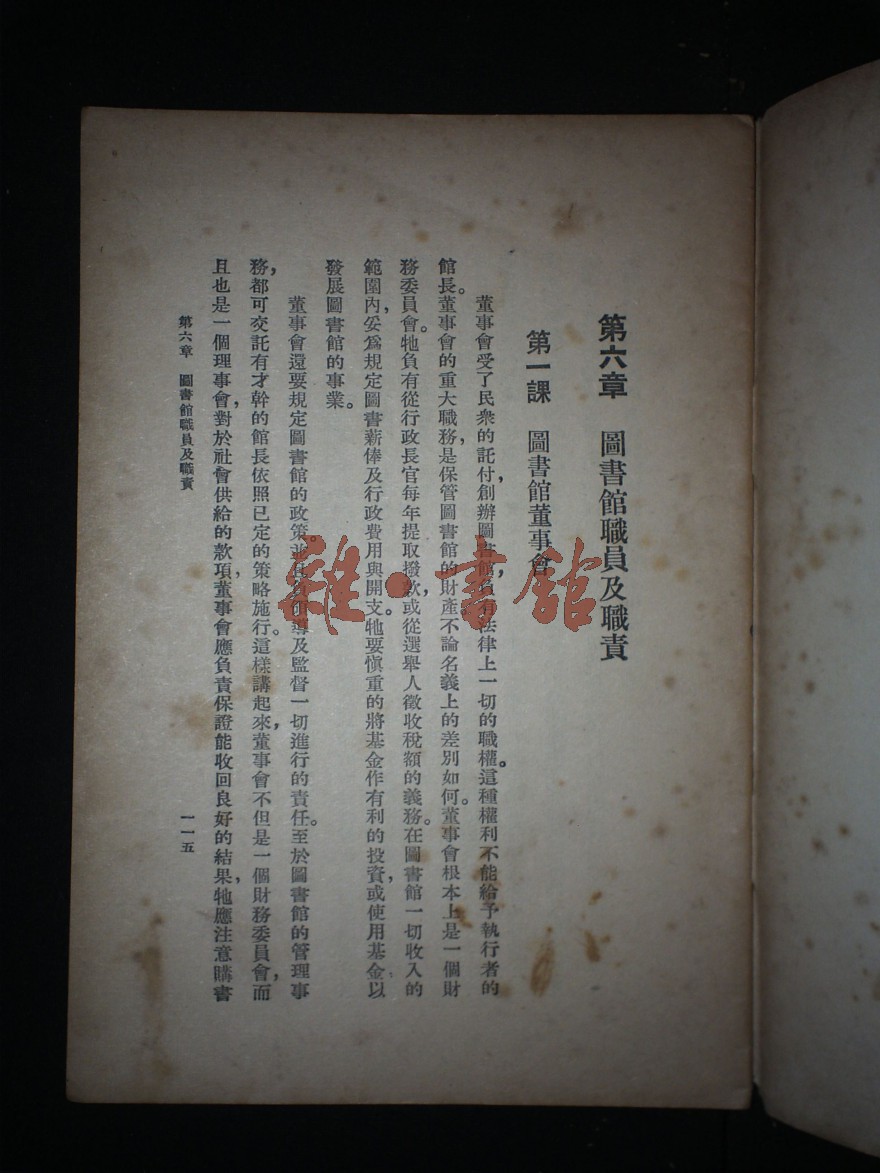 第六章　圖書館職員及職責
第一課　圖書館董事會
董事會受了民衆的託付,創辦圖書館,負有法律上一切的職權。這種權利不能給予執行者的
館長。董事會的重大職務,是保管圖書館的財產不論名義上的差別如何。董事會根本上是一個財
務委員會。牠負有從行政長官每年提取撥款,或從選舉人徵收稅額的義務。在圖書館一切收入的
範圍內,妥爲規定圖書薪俸及行政費用與開支。牠要愼重的將基金作有利的投資,或使用基金以
發展圖書館的事業。
董事會還要規定圖書館的政策。並且負領導及監督一切進行的責任。至於圖書館的管理事
務,都可交託有才幹的館長依照已定的策略施行。這樣講起來,董事會不但是一個財務委員會,而
且也是一個理事會,對於社會供給的款項,董事會應負責保證能收回良好的結果,牠應注意購書
第六章　圖書館職員及職責
一一五
雜·書館